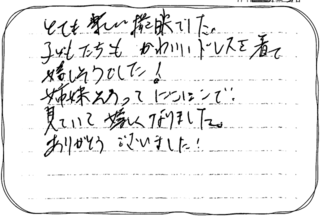 とても楽しい撮影でした。
子どもたちも かわいいドレスを着て
嬉しそうでした!
姉妹そろって にこにこで
見ていて 嬉しくなりました。
ありがとう ございました!